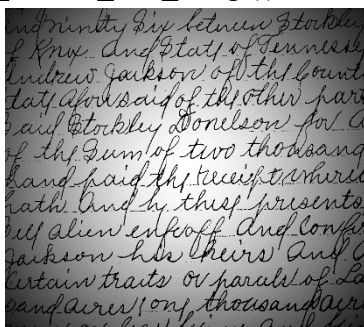 and ninetty Six between Stockley
f Knox and State of Tennesse
Andrew Jackson of the Count
tate aforesaid of the other part
said Stockley Donelson for a
of the Sum of two thousand
hand paid the receipt where
hath and by these presents
sell alien enfeoff and Confir
Jackson his heirs and
Certain traits or parcels of La
sand acres, one thousand acr